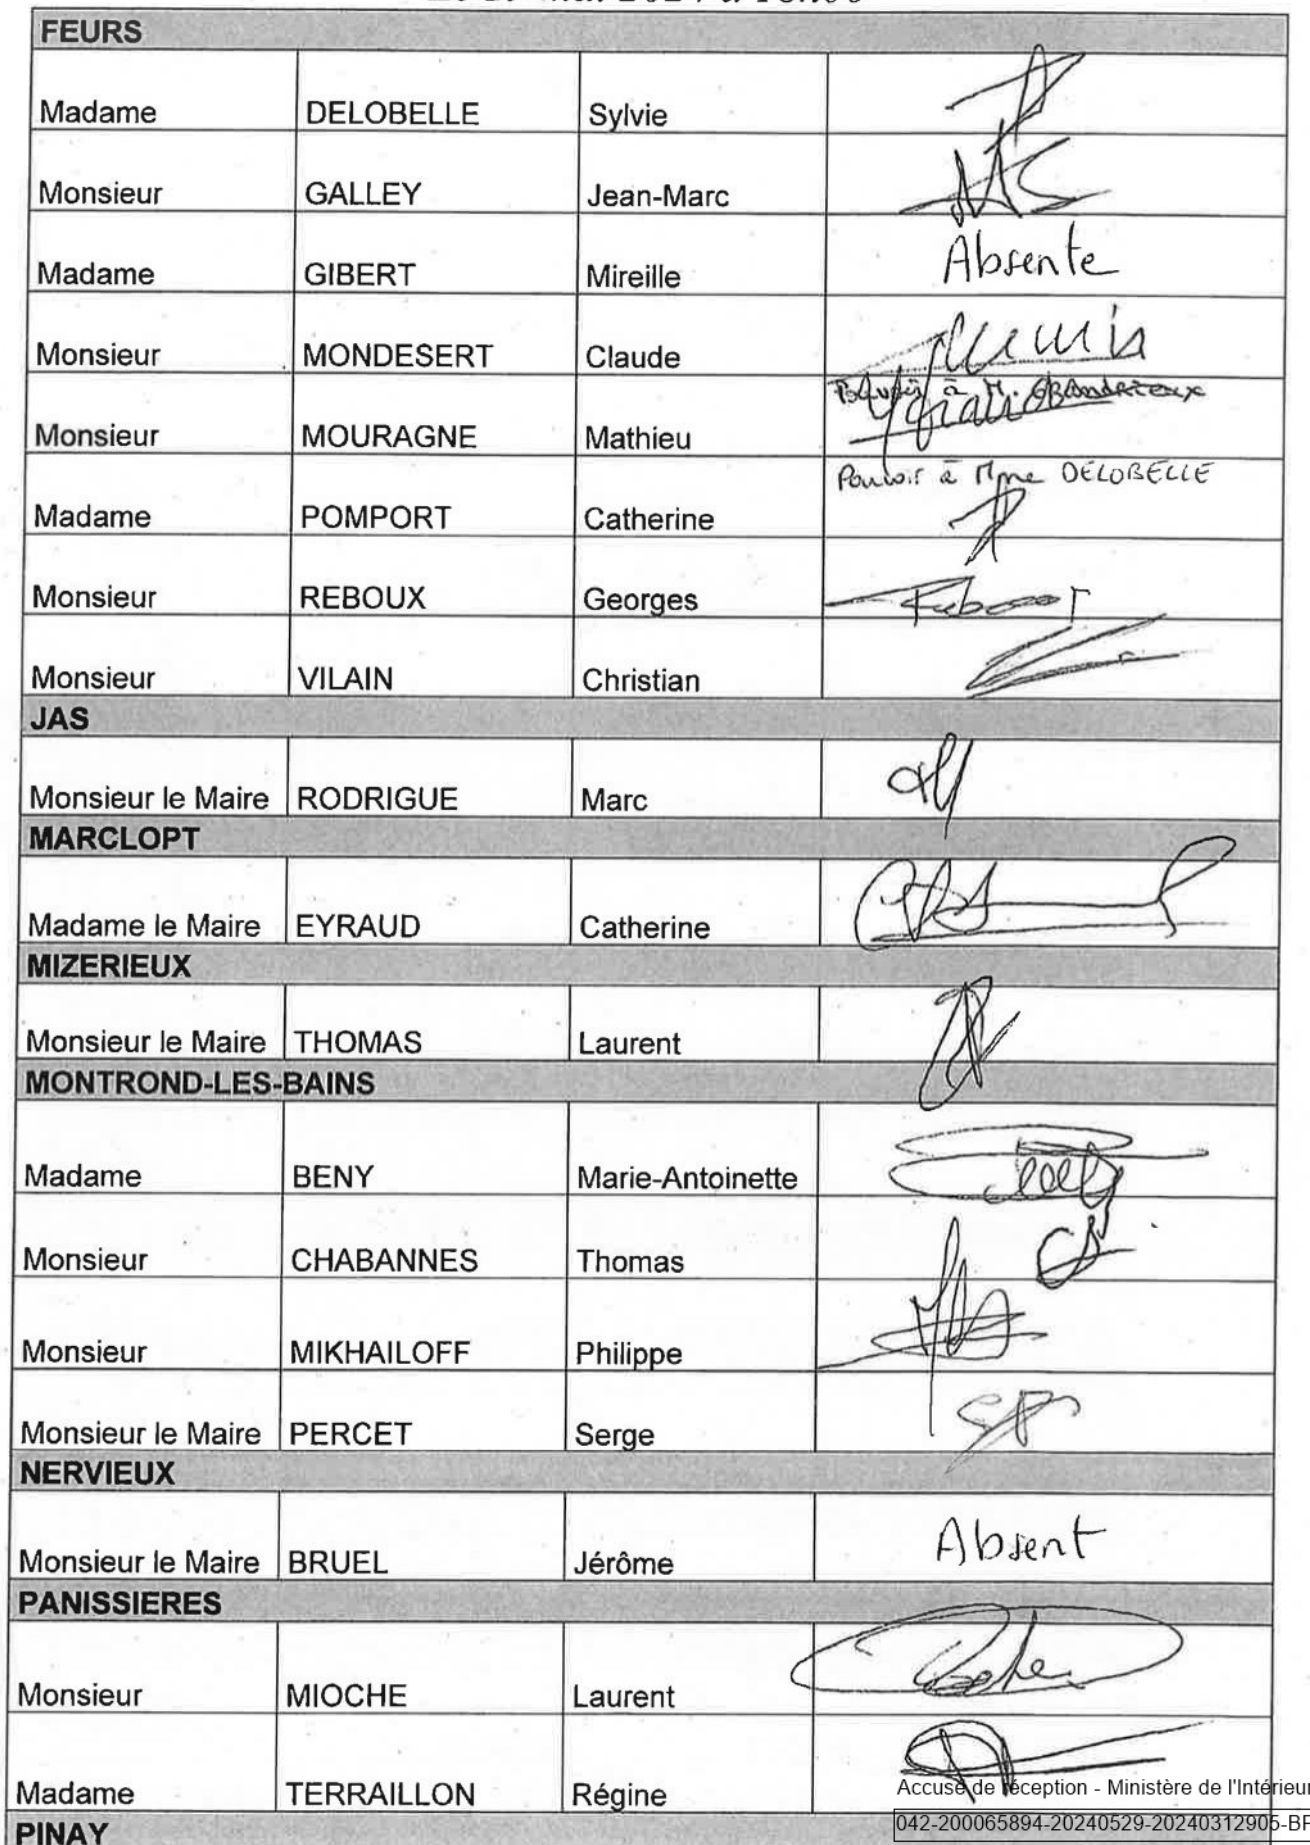 FEURS
Madame DELOBELLE Sylvie
Monsieur GALLEY Jean-Marc
Madame GIBERT Mireille Absente
Monsieur MONDESERT Claude
Pouvoir à M. GRANDRIEUX
Monsieur MOURAGNE Mathieu
Pouvoir à Mme DELOBELLE
Madame POMPORT Catherine
Monsieur REBOUX Georges
Monsieur VILAIN Christian
JAS
Monsieur le Maire RODRIGUE Marc
MARCLOPT
Madame le Maire EYRAUD Catherine
MIZERIEUX
Monsieur le Maire THOMAS Laurent
MONTROND-LES-BAINS
Madame BENY Marie-Antoinette
Monsieur CHABANNES Thomas
Monsieur MIKHAILOFF Philippe
Monsieur le Maire PERCET Serge
NERVIEUX
Monsieur le Maire BRUEL Jérôme Absent
PANISSIERES
Monsieur MIOCHE Laurent
Madame TERRAILLON Régine
Accusé de réception - Ministère de l'Intérieur
042-200065894-20240529-20240312905-BF
PINAY